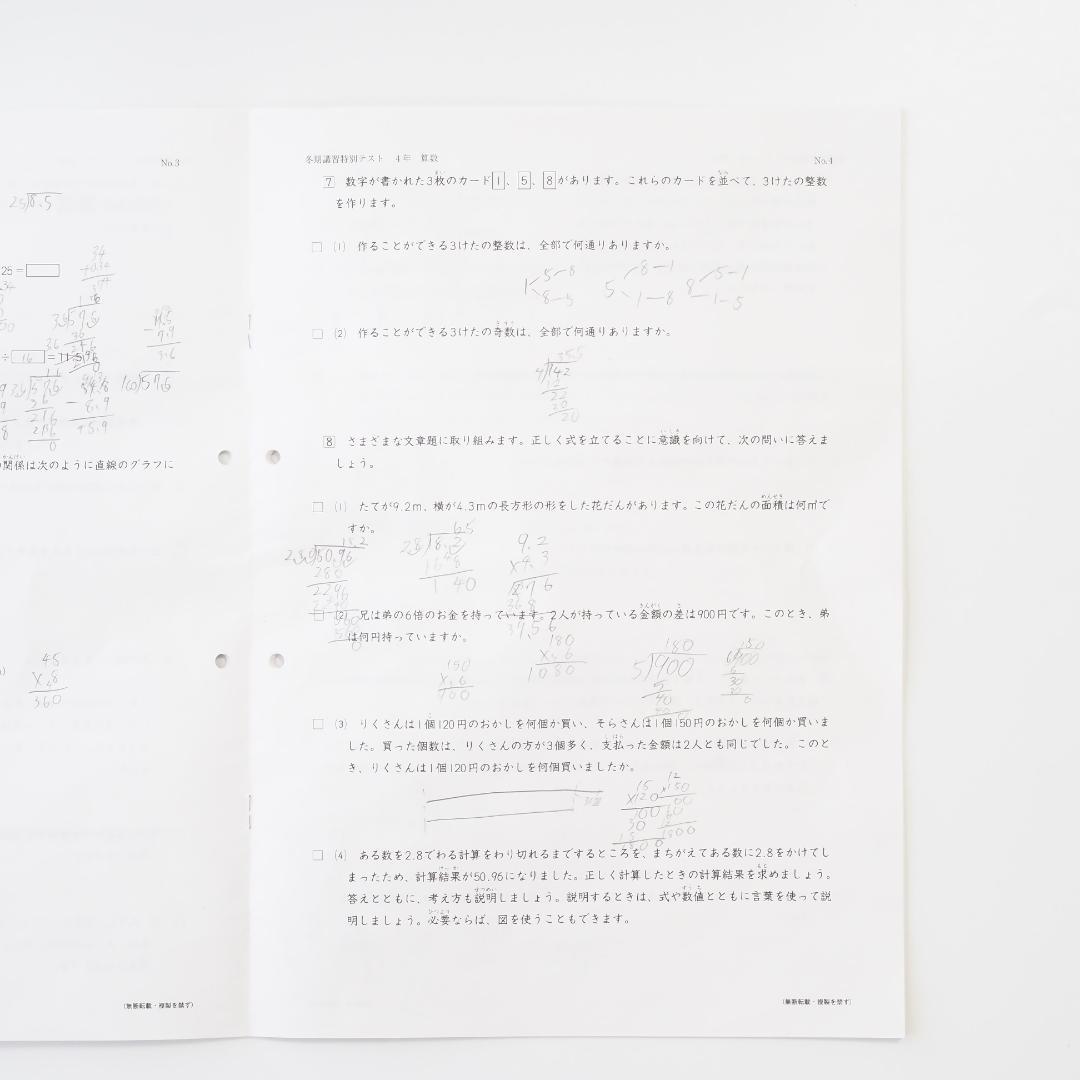 No.3
25 8.5
25=
34
÷ 16 =
36 576
160 576
関係は次のように直線のグラフに
45
×.8
360
(無断転載・複製を禁ず)
冬期講習特別テスト 4年 算数
No.4
7 数字が書かれた3枚のカード1、5、8があります。これらのカードを並べて、3けたの整数
を作ります。
□ (1) 作ることができる3けたの整数は、全部で何通りありますか。
1 5-8 8-5
5 8-1 1-8
8 5-1 1-5
□ (2) 作ることができる3けたの奇数は、全部で何通りありますか。
355
4 142
12
22
20
20
8 さまざまな文章題に取り組みます。正しく式を立てることに意識を向けて、次の問いに答えま
しょう。
□ (1) たてが9.2m、横が4.3mの長方形の形をした花だんがあります。この花だんの面積は何㎡で
すか。
18.2
50.96
280
2296
6.5
28 18.2
168
140
9.2
×4.3
276
368
39.56
□ (2) 兄は弟の6倍のお金を持っています。2人が持っている金額の差は900円です。このとき、弟
は何円持っていますか。
150
×.6
900
180
×.6
1080
180
5 900
5
40
40
150
6 900
6
30
30
0
□ (3) りくさんは1個120円のおかしを何個か買い、そらさんは1個150円のおかしを何個か買いま
した。買った個数は、りくさんの方が3個多く、支払った金額は2人とも同じでした。このと
き、りくさんは1個120円のおかしを何個買いましたか。
15
×120
300
30
15
1800
12
×150
00
60
12
1800
□ (4) ある数を2.8でわる計算をわり切れるまでするところを、まちがえてある数に2.8をかけてし
まったため、計算結果が50.96になりました。正しく計算したときの計算結果を求めましょう。
答えとともに、考え方も説明しましょう。説明するときは、式や数値とともに言葉を使って説
明しましょう。必要ならば、図を使うこともできます。
(無断転載・複製を禁ず)